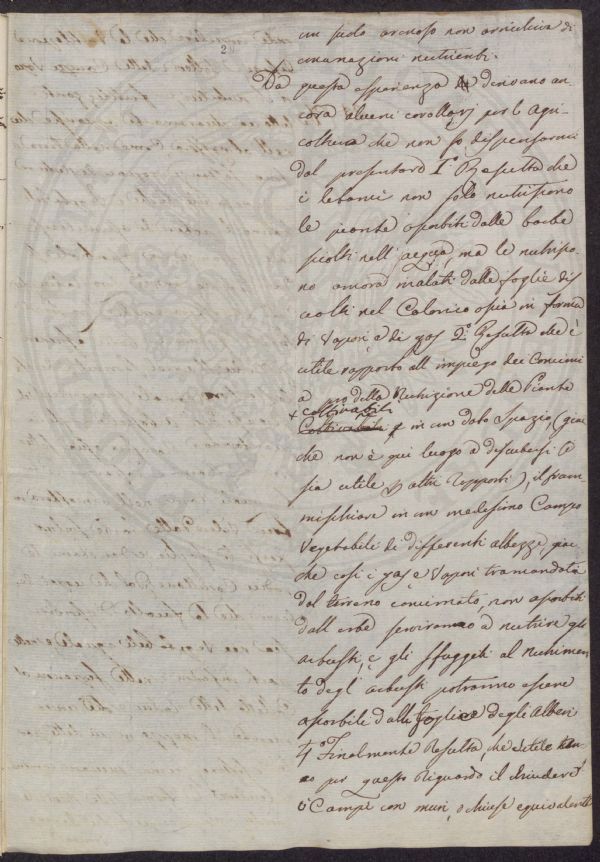 2
un suolo arenoso non arricchia di
emanazioni nutrienti.
Da questa esperienza derivano an-
cora alcuni corollarj per l' agri-
coltura che non so dispensarmi
dal presentare 1.° Resulta che
i letami non solo nutrissono
le piante assorbiti dalle barbe
sciolti nell' acqua, ma le nutrisco-
no ancora inalati dalle foglie dis
ciolti nel Calorico ossia in forma
di Vapori, e di gas 2.° Resulta che è
utile rapporto all' impiego dei Concimi
a pro della Nutrizione delle Piante
coltivabili
in un dato Spazio, (giac
che non è qui luogo a discutersi se
sia utile altri rapporti), il fram
mischiare in un medesimo Campo
Vegetabili di differenti altezze, giac
che così i gas e Vapori tramandati
dal terreno concimato, non assorbiti
dall' erbe serviranno a nutrire gli
arbusti, e gli sfuggiti al nutrimen
to degl' arbusti potranno essere
assorbiti dalle foglie degli Alberi
4.° Finalmente Resulta, che
per questo Riguardo il chiudere
i Campi con muri, o chiuse equivalenti